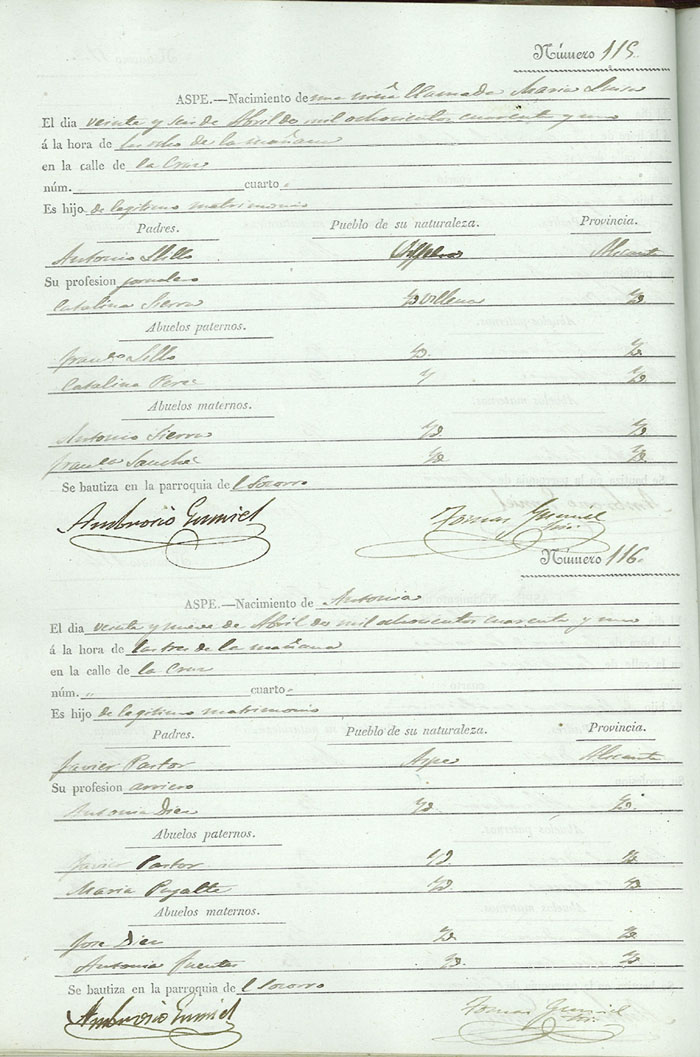 Número 115.
ASPE.—Nacimiento de una niña llamada Maria Luisa
El dia veinte y seis de Abril de mil ochocientos cuarenta y uno
á la hora de las ocho de la mañana
en la calle de la Cruz
núm. cuarto
Es hijo de legitimo matrimonio
Padres. Pueblo de su naturaleza. Provincia.
Antonio Lillo Alicante
Su profesion jornalero
Catalina Sierra Villena Yd.
Abuelos paternos.
Franco Lillo Yd. Yd.
Catalina Perez Y Yd.
Abuelos maternos.
Antonio Sierra Yd. Yd.
Franca Sanchez Yd. Yd.
Se bautiza en la parroquia de l Socorro
Ambrosio Gumiel Tomas Gumiel
Número 116.
ASPE.—Nacimiento de Antonia
El dia veinte y nueve de Abril de mil ochocientos cuarenta y uno
á la hora de las tres de la mañana
en la calle de la Cruz
núm. „ cuarto
Es hijo de legitimo matrimonio
Padres. Pueblo de su naturaleza. Provincia.
Javier Pastor Aspe Alicante
Su profesion arriero
Antonia Diez Yd. Yd.
Abuelos paternos.
Javier Pastor Yd. Yd.
Maria Puyalte Yd. Yd.
Abuelos maternos.
Jose Diez Yd. Yd.
Antonia Fuentes Yd. Yd.
Se bautiza en la parroquia de l Socorro
Ambrosio Gumiel Tomas Gumiel